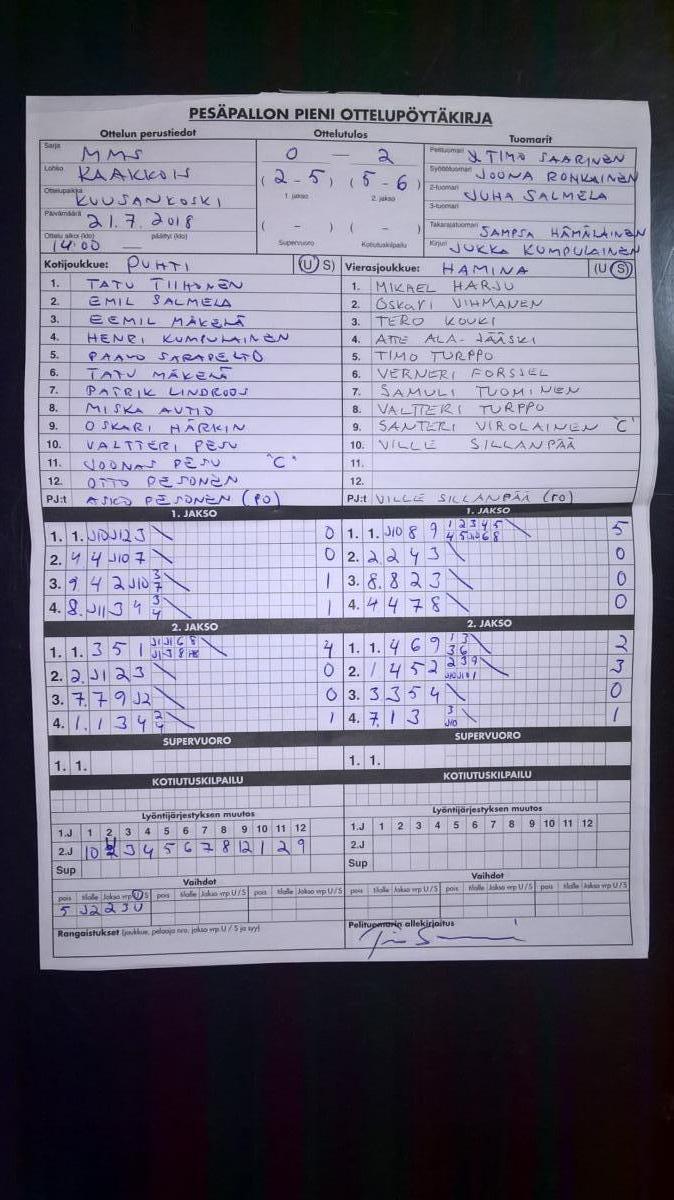 PESÄPALLON PIENI OTTELUPÖYTÄKIRJA
Ottelun perustiedot
Sarja MMS
Lohko KAAKKOIS
Ottelupaikka KUUSANKOSKI
Päivämäärä 21.7.2018
Ottelu alkoi (klo) päättyi (klo)
14:00 —
Ottelutulos
0 — 2
(2-5) (5-6)
1. jakso 2. jakso
( - ) ( - )
Supervuoro Kotiutuskilpailu
Tuomarit
Pelituomari TIMO SAARINEN
Syöttötuomari JOONA RONKAINEN
2-tuomari JUHA SALMELA
3-tuomari
Takarajatuomari SAMPSA HÄMÄLÄINEN
Kirjuri JUKKA KUMPULAINEN
Kotijoukkue: PUHTI (U S)
1. TATU TIIHONEN
2. EMIL SALMELA
3. EEMIL MÄKELÄ
4. HENRI KUMPULAINEN
5. PAAVO SARAPELTO
6. TATU MÄKELÄ
7. PATRIK LINDROOS
8. MISKA AUTIO
9. OSKARI HÄRKIN
10. VALTTERI PESU
11. JOONAS PESU "C"
12. OTTO PESONEN
PJ:t ASKO PESONEN (PO)
Vierasjoukkue: HAMINA (U S)
1. MIKAEL HARJU
2. OSKARI VIHMANEN
3. TERO KOUKI
4. ATTE ALA-JÄÄSKI
5. TIMO TURPPO
6. VERNERI FORSSEL
7. SAMULI TUOMINEN
8. VALTTERI TURPPO
9. SANTERI VIROLAINEN "C"
10. VILLE SILLANPÄÄ
11.
12.
PJ:t VILLE SILLANPÄÄ (PO)
1. JAKSO
1. 1. J10 J12 3 0
2. 4 4 J10 7 0
3. 9 4 2 J10 3 7 1
4. 8. J11 3 4 3 4 1
1. JAKSO
1. 1. J10 8 9 1 2 3 4 5 5
2. 2. 2 4 3 0
3. 8. 8 2 3 0
4. 4 4 7 8 0
2. JAKSO
1. 1. 3 5 1 4
2. 2. J1 2 3 0
3. 7. 7 9 J2 0
4. 1. 1 3 4 2 4 1
2. JAKSO
1. 1. 4 6 9 1 3 3 6 2
2. 1 4 5 2 2 3 9 3
3. 3 3 5 4 0
4. 7. 1 3 3 J10 1
SUPERVUORO
1. 1.
SUPERVUORO
1. 1.
KOTIUTUSKILPAILU
KOTIUTUSKILPAILU
Lyöntijärjestyksen muutos
1.J 1 2 3 4 5 6 7 8 9 10 11 12
2.J 10 3 4 5 6 7 8 12 1 2 9
Sup
Lyöntijärjestyksen muutos
1.J 1 2 3 4 5 6 7 8 9 10 11 12
2.J
Sup
Vaihdot
pois tilalle Jakso vrp U/S pois tilalle Jakso vrp U/S pois tilalle Jakso vrp U/S
5 J2 2 3 U
Vaihdot
pois tilalle Jakso vrp U/S pois tilalle Jakso vrp U/S pois tilalle Jakso vrp U/S
Rangaistukset (joukkue, pelaaja nro, jakso vrp U / S ja syy)
Pelituomarin allekirjoitus